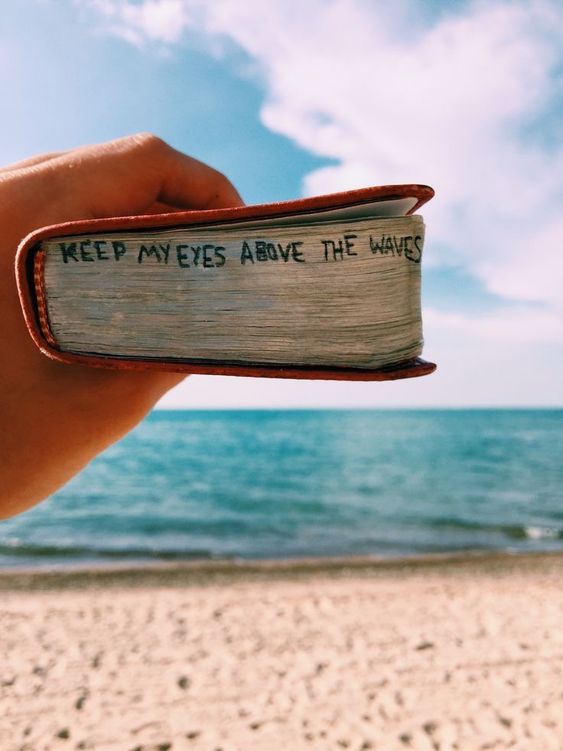 KEEP MY EYES ABOVE THE WAVES